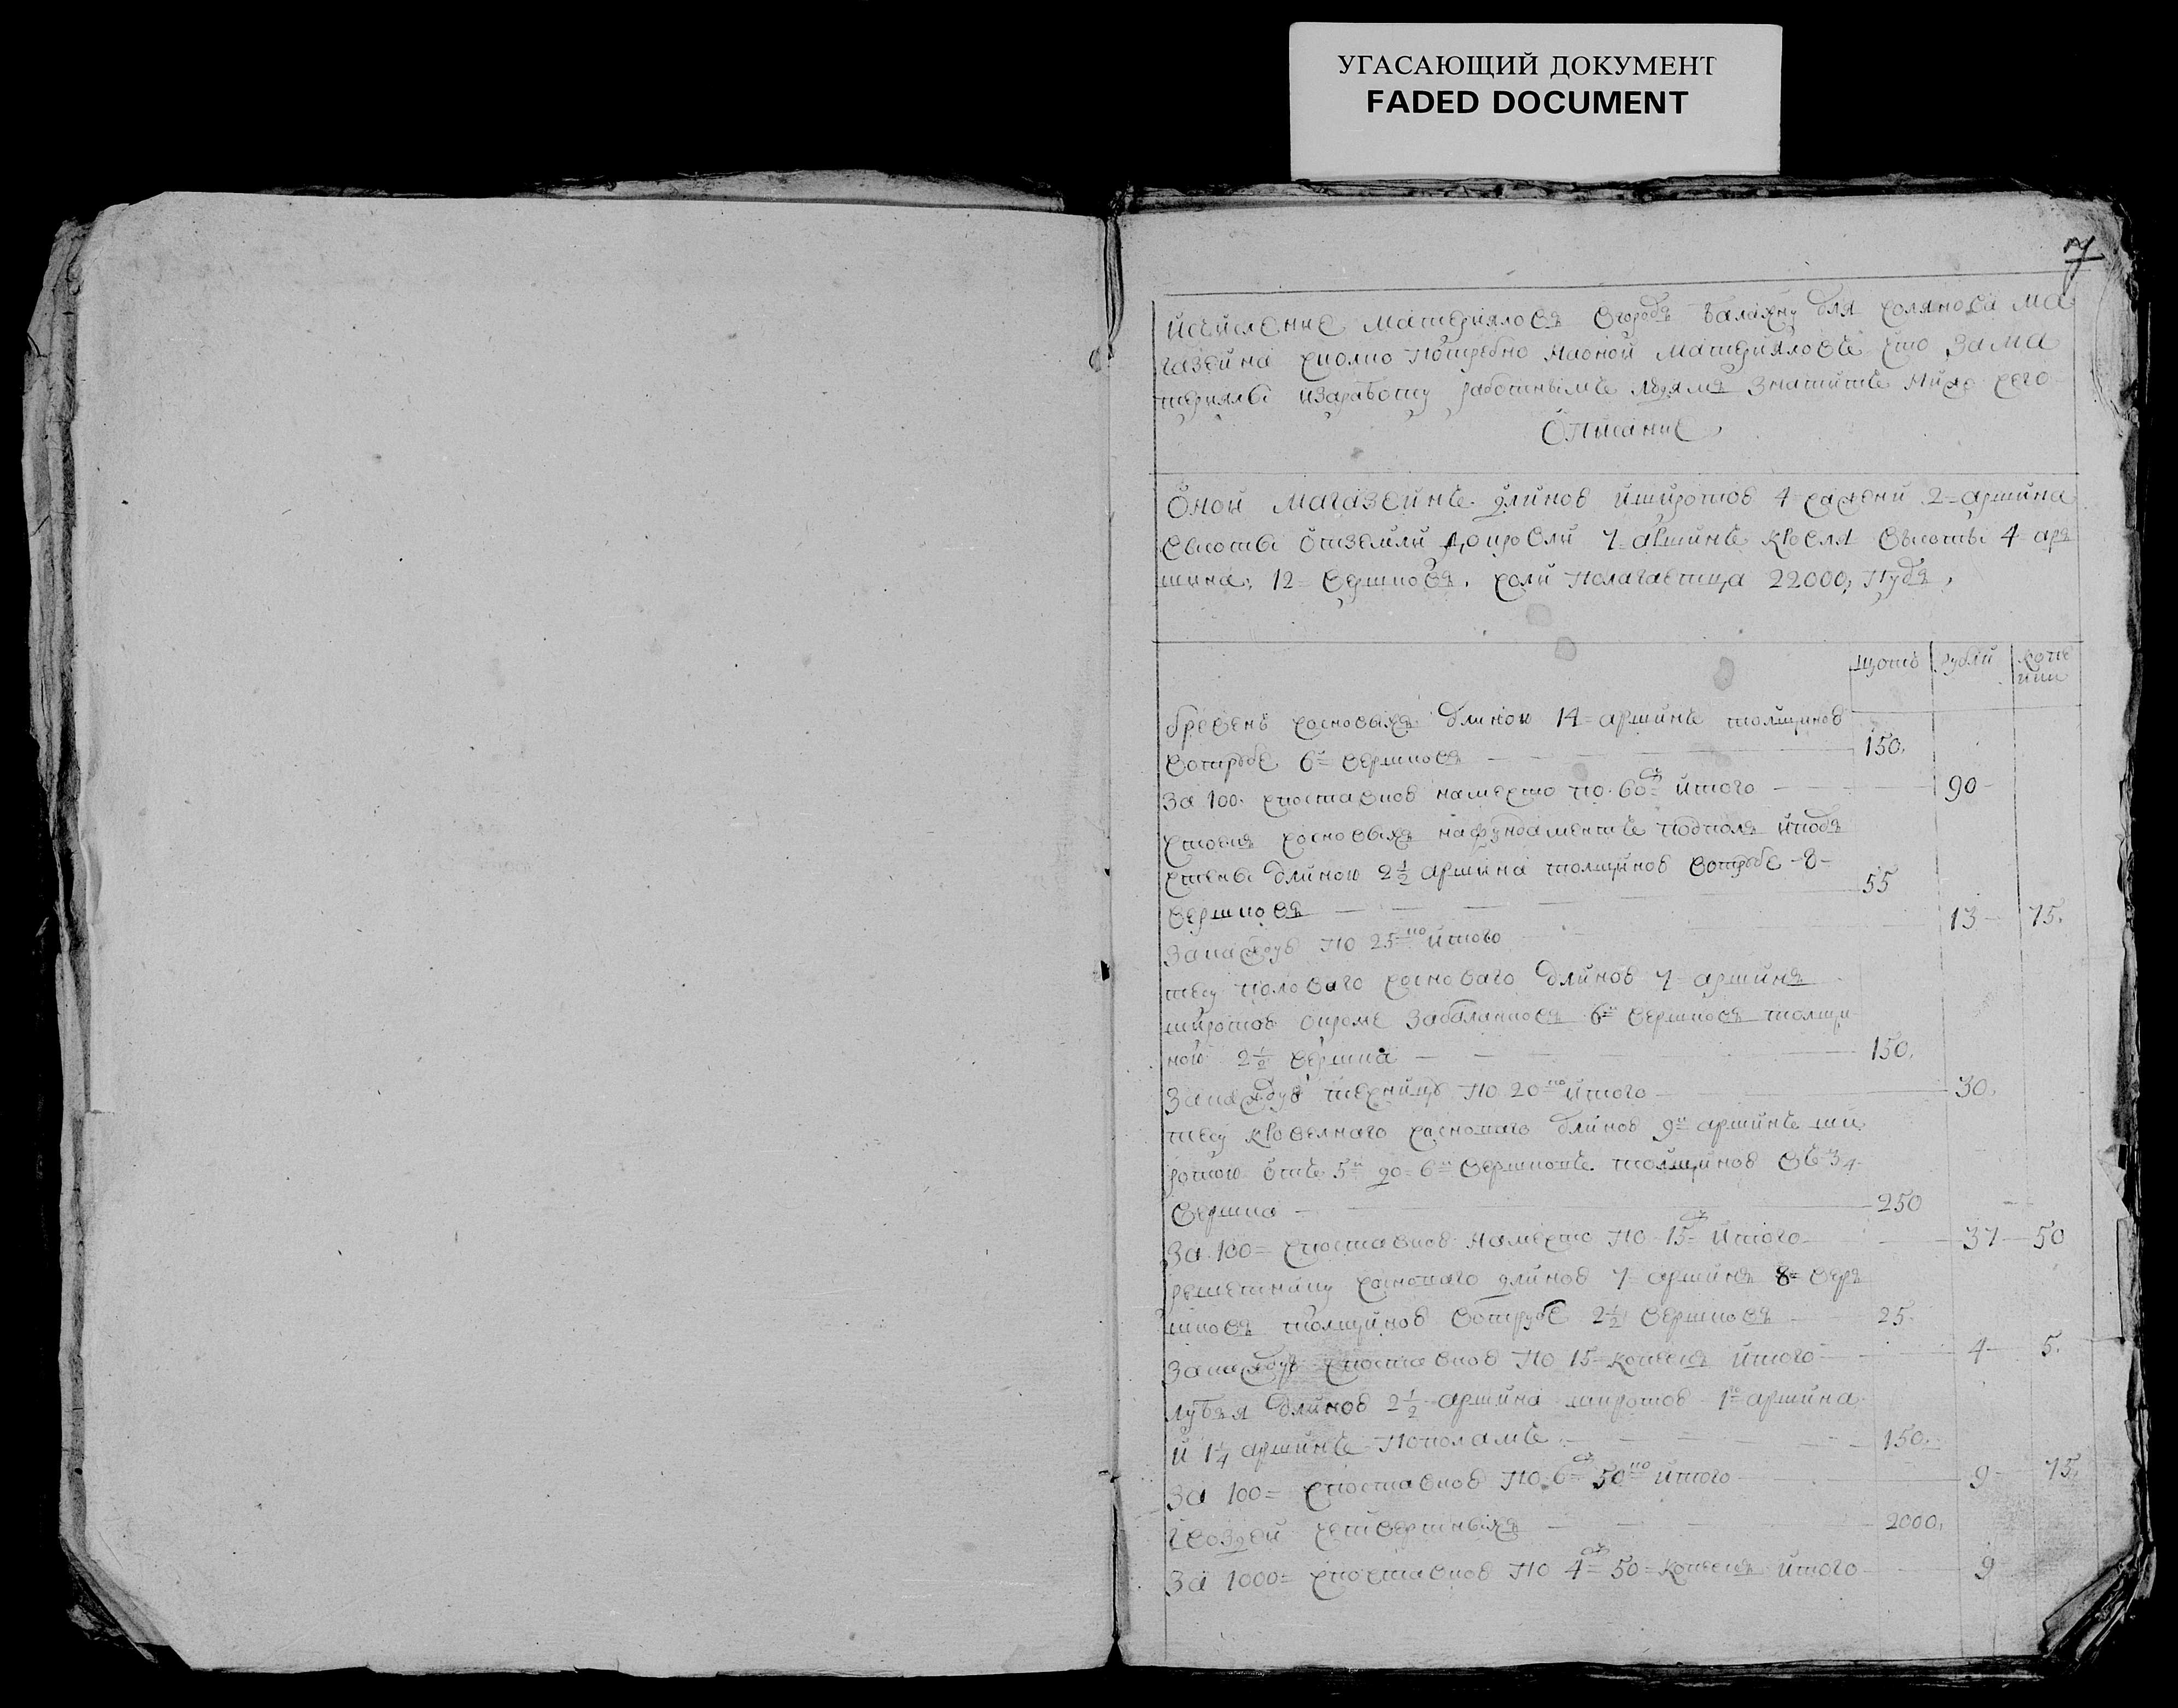 УГАСАЮЩИЙ ДОКУМЕНТ
FADED DOCUMENT
7
Исчисление материаловъ вгородъ Балахну для солянова ма
газеина сколко потребно наоной материаловъ что зама
териялы изаработу работнымъ людямъ значитъ ниже сего
Описание
Оной магазеинъ длиною ишириною 4 сажени 2 аршина
высоты отземли докровли 7 аршинъ кровля высоты 4 ар
шина, 12 вершковъ, соли полагаетца 22000, пудъ,
щотъ рубли копе
ики
бревенъ сосновыхъ длиною 14 аршинъ толщиною
вотрубе 6 вершковъ 150.
За 100. споставкою наместо по 60 итого 90
стоевъ сосновыхъ нафундаментъ подполъ иподъ
стены длиною 2 1/2 аршина толщиною вотрубе 8
вершковъ 55
Закаждую по 25 итого 13 75.
тесу половаго сосноваго длиною 7 аршинъ
шириною окроме заболонковъ 6 вершковъ толщи
ною 2 1/2 вершка 150.
Закаждую тесницу по 20 итого 30.
тесу кровелнаго сосноваго длиною 9 аршинъ ши
риною отъ 5 до 6 вершковъ толщиною въ 3/4
вершка 250
За 100 споставкою наместо по 15 итого 37 50
решетнику сосноваго длиною 7 аршинъ 8 вер
шковъ толщиною вотрубе 2 1/2 вершковъ 25.
Закаждую споставкою по 15 копеекъ итого 4 5.
лубья длиною 2 1/2 аршина шириною 1 аршина
и 1 1/4 аршинъ пополамъ 150.
За 100 споставкою по 6 50 итого 9 75.
Гвоздеи четвертныхъ 2000.
За 1000 споставкою по 4 50 копеекъ итого 9